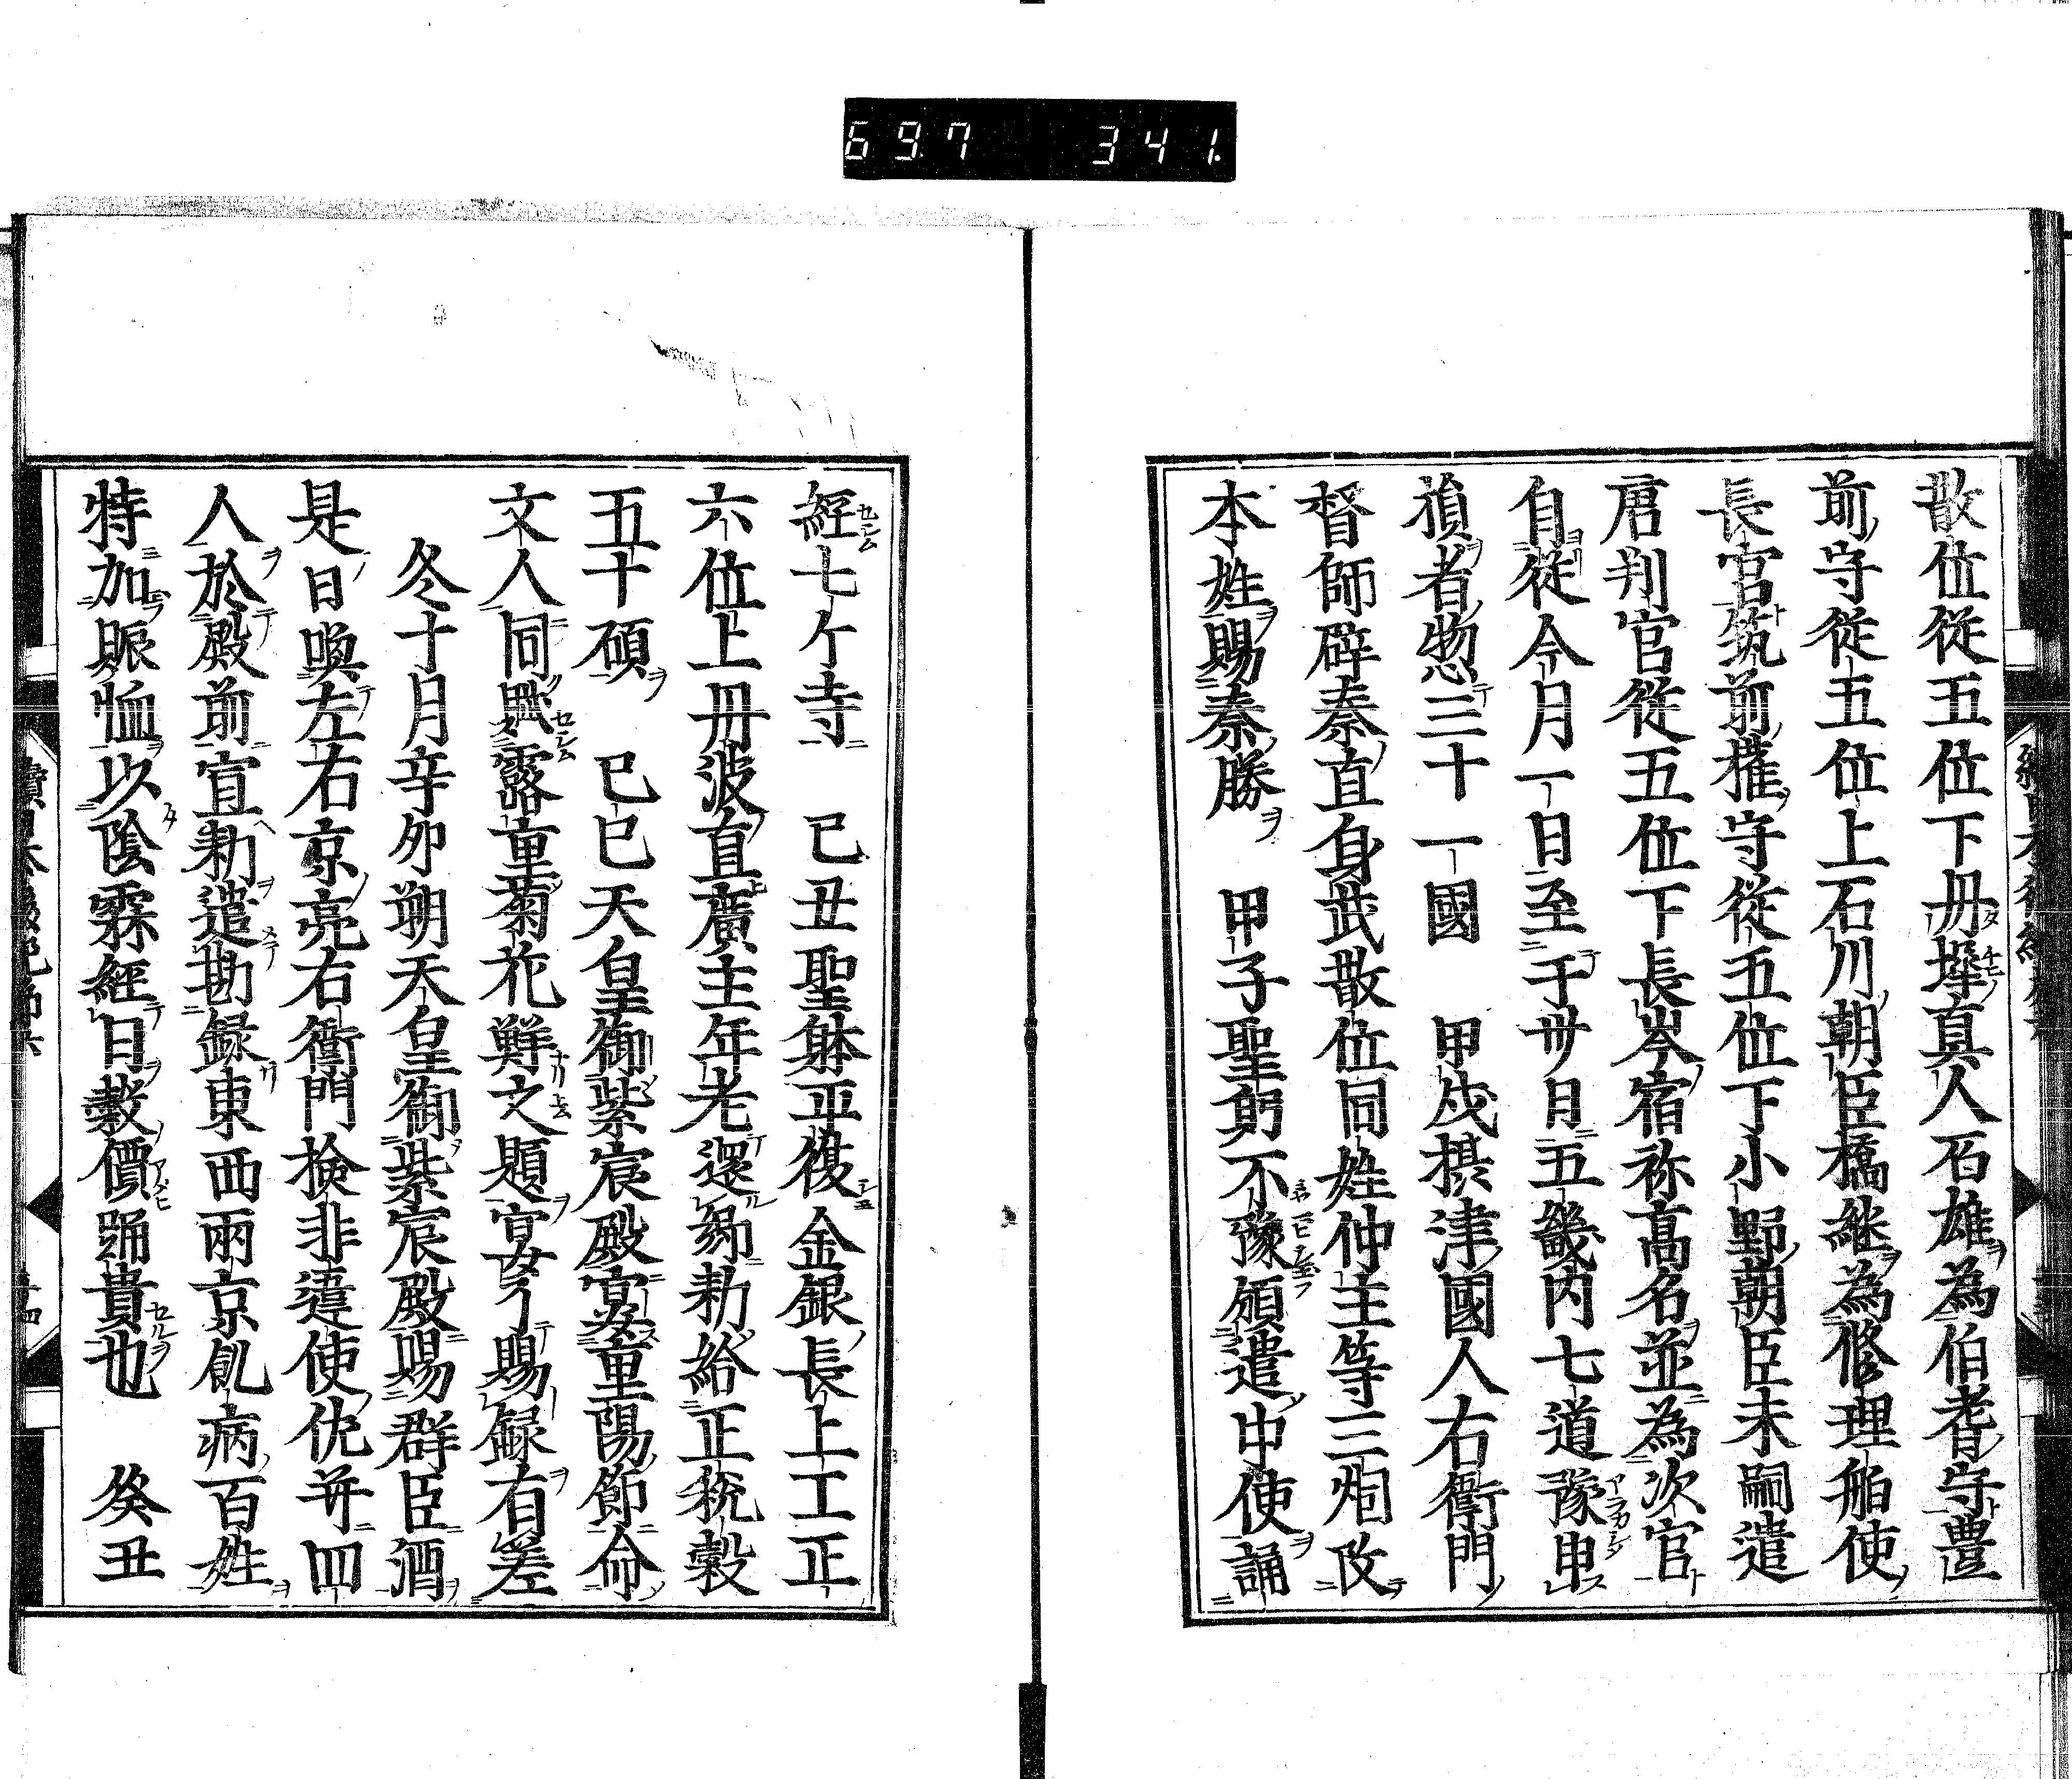 697 341.
散位從五位下丹墀真人石雄為伯耆守豊
前守從五位上石川朝臣橋継為修理舶使
長官筑前權守從五位下小野朝臣末嗣遣
唐判官從五位下長岑宿祢高名並為次官
自從今月一日至于卅月五畿内七道豫申
損者惣三十一國　甲戌摂津國人右衛門
督師辟秦直身武散位同姓仲主等三烟改
本姓賜秦勝　甲子聖躬不豫願遣中使誦
經七ケ寺　己丑聖躰平復金銀長上工正
六位上丹波直廣主年老還郷勅給正税穀
五十碩　己巳天皇御紫宸殿宴重陽節命
文人同賦露重菊花鮮之題宴了賜録有差
冬十月辛卯朔天皇御紫宸殿賜群臣酒
是日喚左右京亮右衛門撿非違使佐并四
人於殿前宣勅遣勘録東西兩京飢病百姓
特加賑恤以陰霖經日穀價踊貴也　癸丑